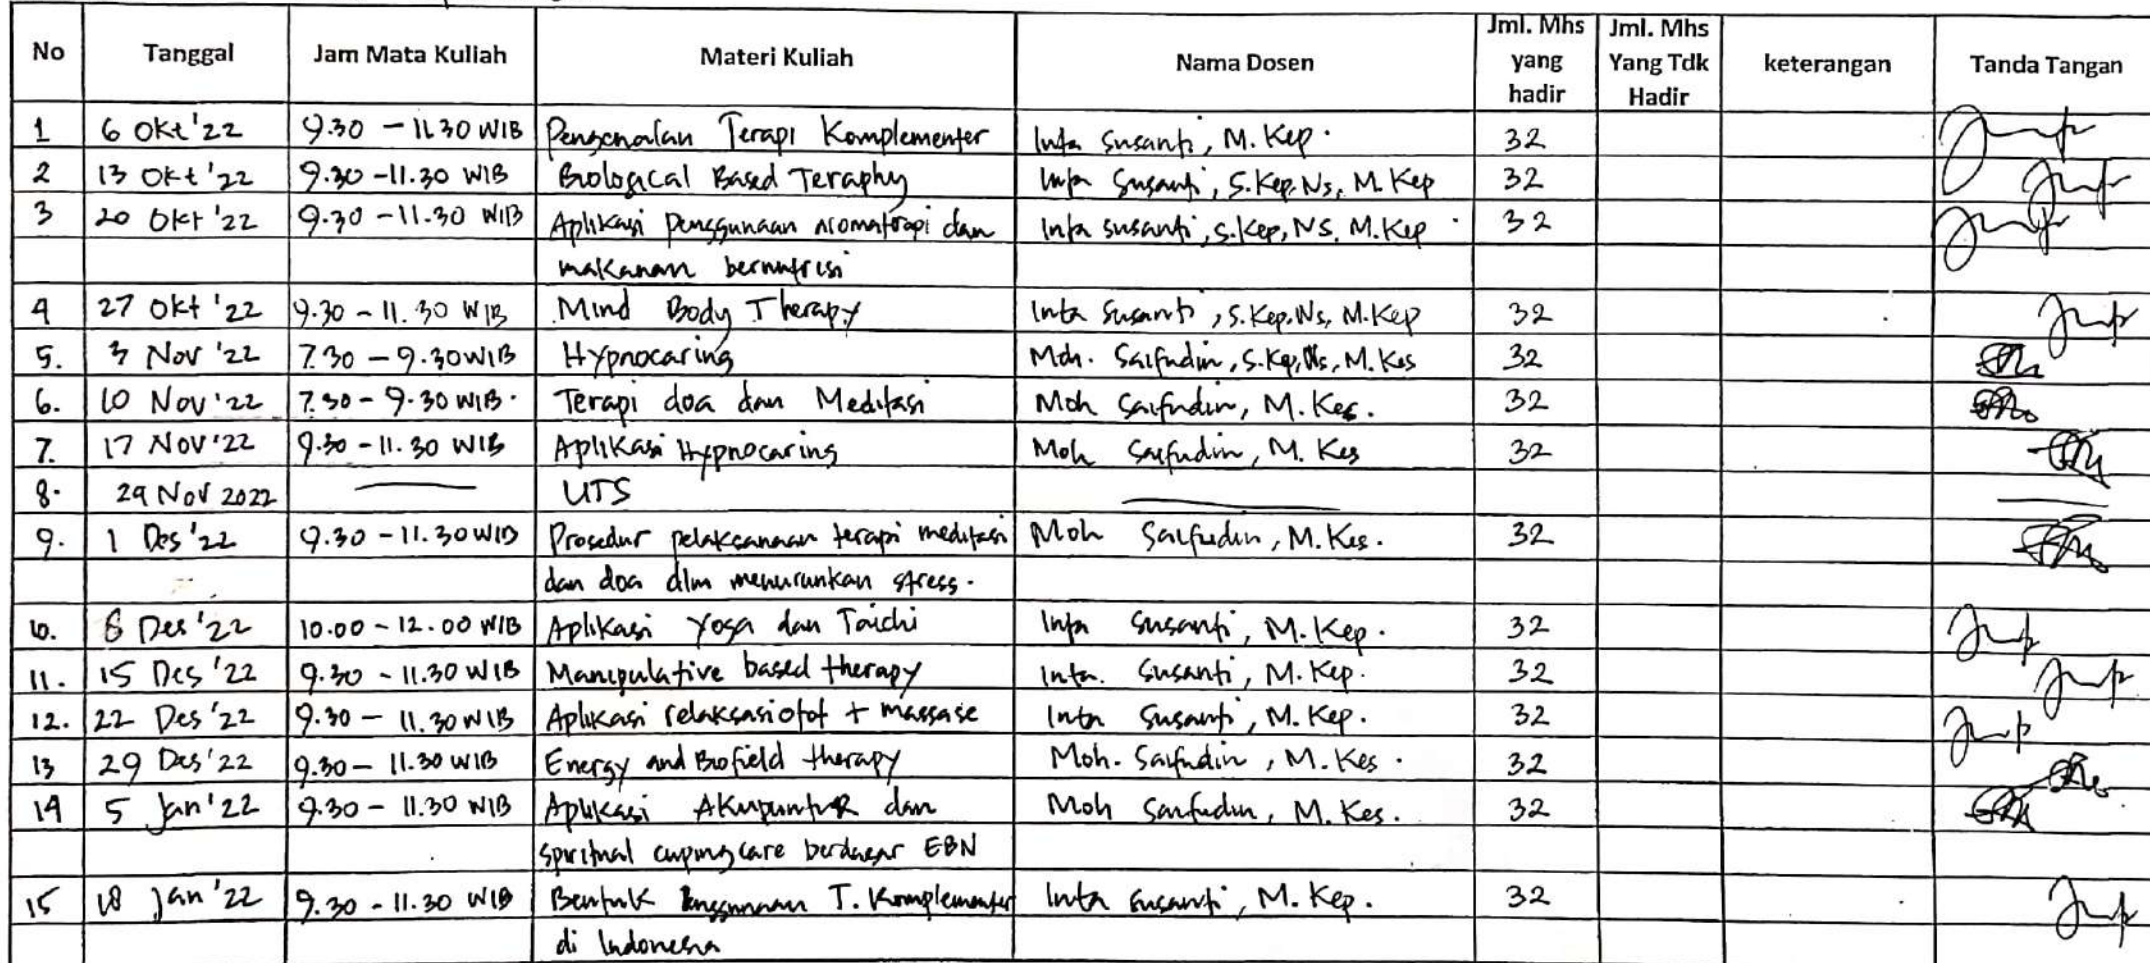 No Tanggal Jam Mata Kuliah Materi Kuliah Nama Dosen Jml. Mhs yang hadir Jml. Mhs Yang Tdk Hadir keterangan Tanda Tangan
1 6 Okt '22 9.30 - 11.30 WIB Pengenalan Terapi Komplementer Inta Susanti, M. Kep. 32
2 13 Okt '22 9.30 - 11.30 WIB Biological Based Teraphy Inta Susanti, S.Kep, Ns, M. Kep 32
3 20 Okt '22 9.30 - 11.30 WIB Aplikasi penggunaan aromaterapi dan Inta susanti, S.Kep, NS, M.Kep 32
makanan bernutrisi
4 27 Okt '22 9.30 - 11.30 WIB Mind Body Therapy Inta Susanti, S.Kep, Ns, M.Kep 32
5. 3 Nov '22 7.30 - 9.30 WIB Hypnocaring Moh. Saifudin, S.Kep, Ns, M. Kes 32
6. 10 Nov '22 7.30 - 9.30 WIB. Terapi doa dan Meditasi Moh Saifudin, M. Kes. 32
7. 17 Nov '22 9.30 - 11.30 WIB Aplikasi Hypnocaring Moh Saifudin, M. Kes 32
8. 29 Nov 2022 UTS
9. 1 Des '22 9.30 - 11.30 WIB Prosedur pelaksanaan terapi meditasi Moh Saifudin, M. Kes. 32
dan doa dlm menurunkan stress.
10. 8 Des '22 10.00 - 12.00 WIB Aplikasi Yoga dan Taichi Inta Susanti, M. Kep. 32
11. 15 Des '22 9.30 - 11.30 WIB Manipulative based therapy Inta. Susanti, M. Kep. 32
12. 22 Des '22 9.30 - 11.30 WIB Aplikasi relaksasi otot + massase Inta Susanti, M. Kep. 32
13 29 Des '22 9.30 - 11.30 WIB Energy and Biofield therapy Moh. Saifudin, M. Kes. 32
14 5 Jan '22 9.30 - 11.30 WIB Aplikasi Akupuntur dan Moh Saifudin, M. Kes. 32
spiritual cuping care berdasar EBN
15 18 Jan '22 9.30 - 11.30 WIB Bentuk T. Komplementer Inta Susanti, M. Kep. 32
di Indonesia